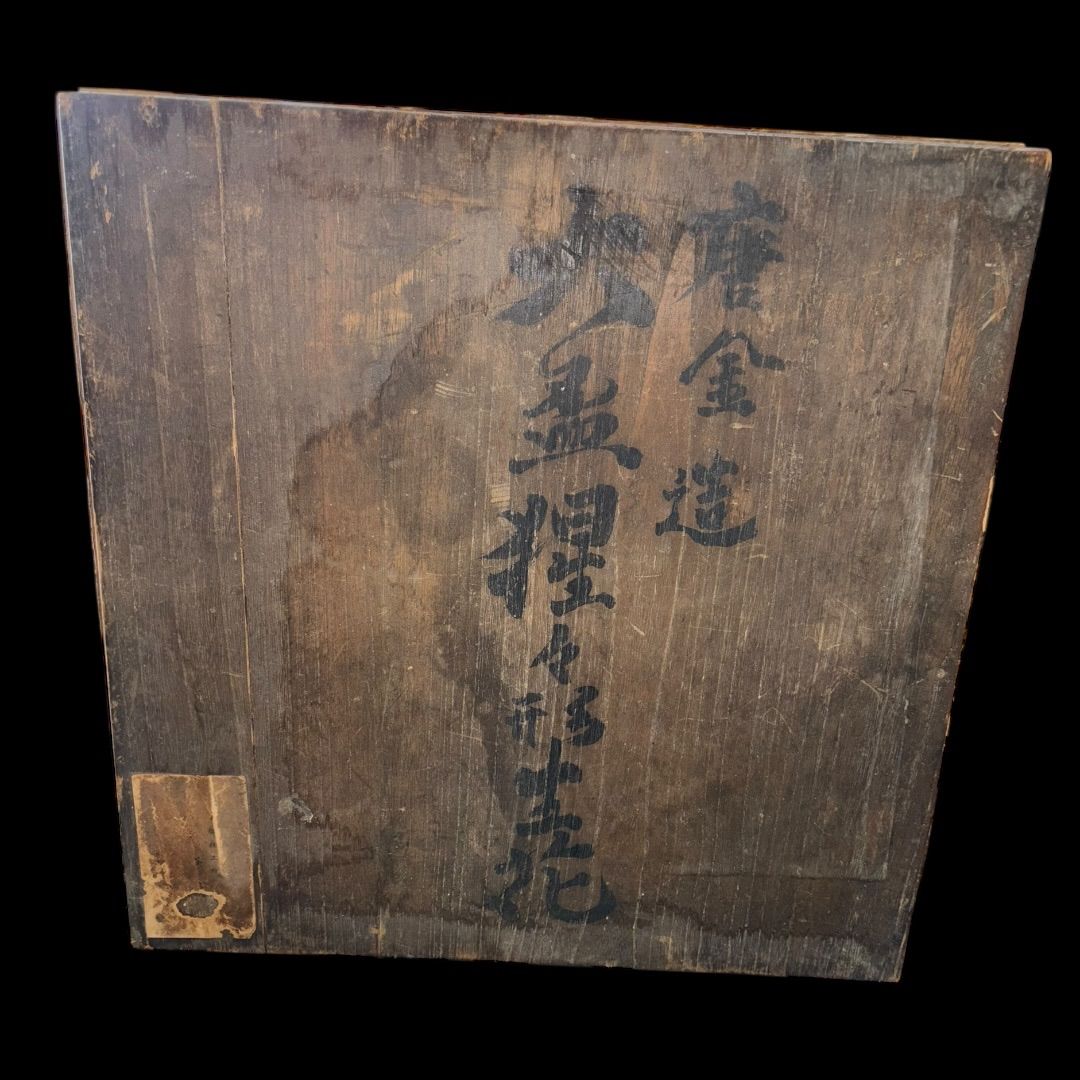 唐金造
大盃猩々形生花